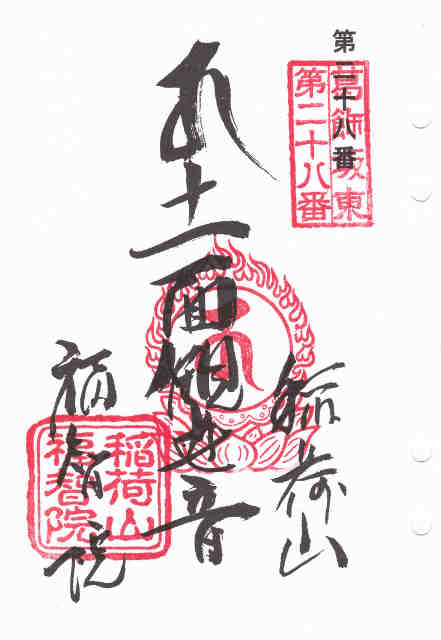 第二十八番
葛飾坂東
第二十八番
十一面観世音
稲荷山
福智院
稲荷山
福智院